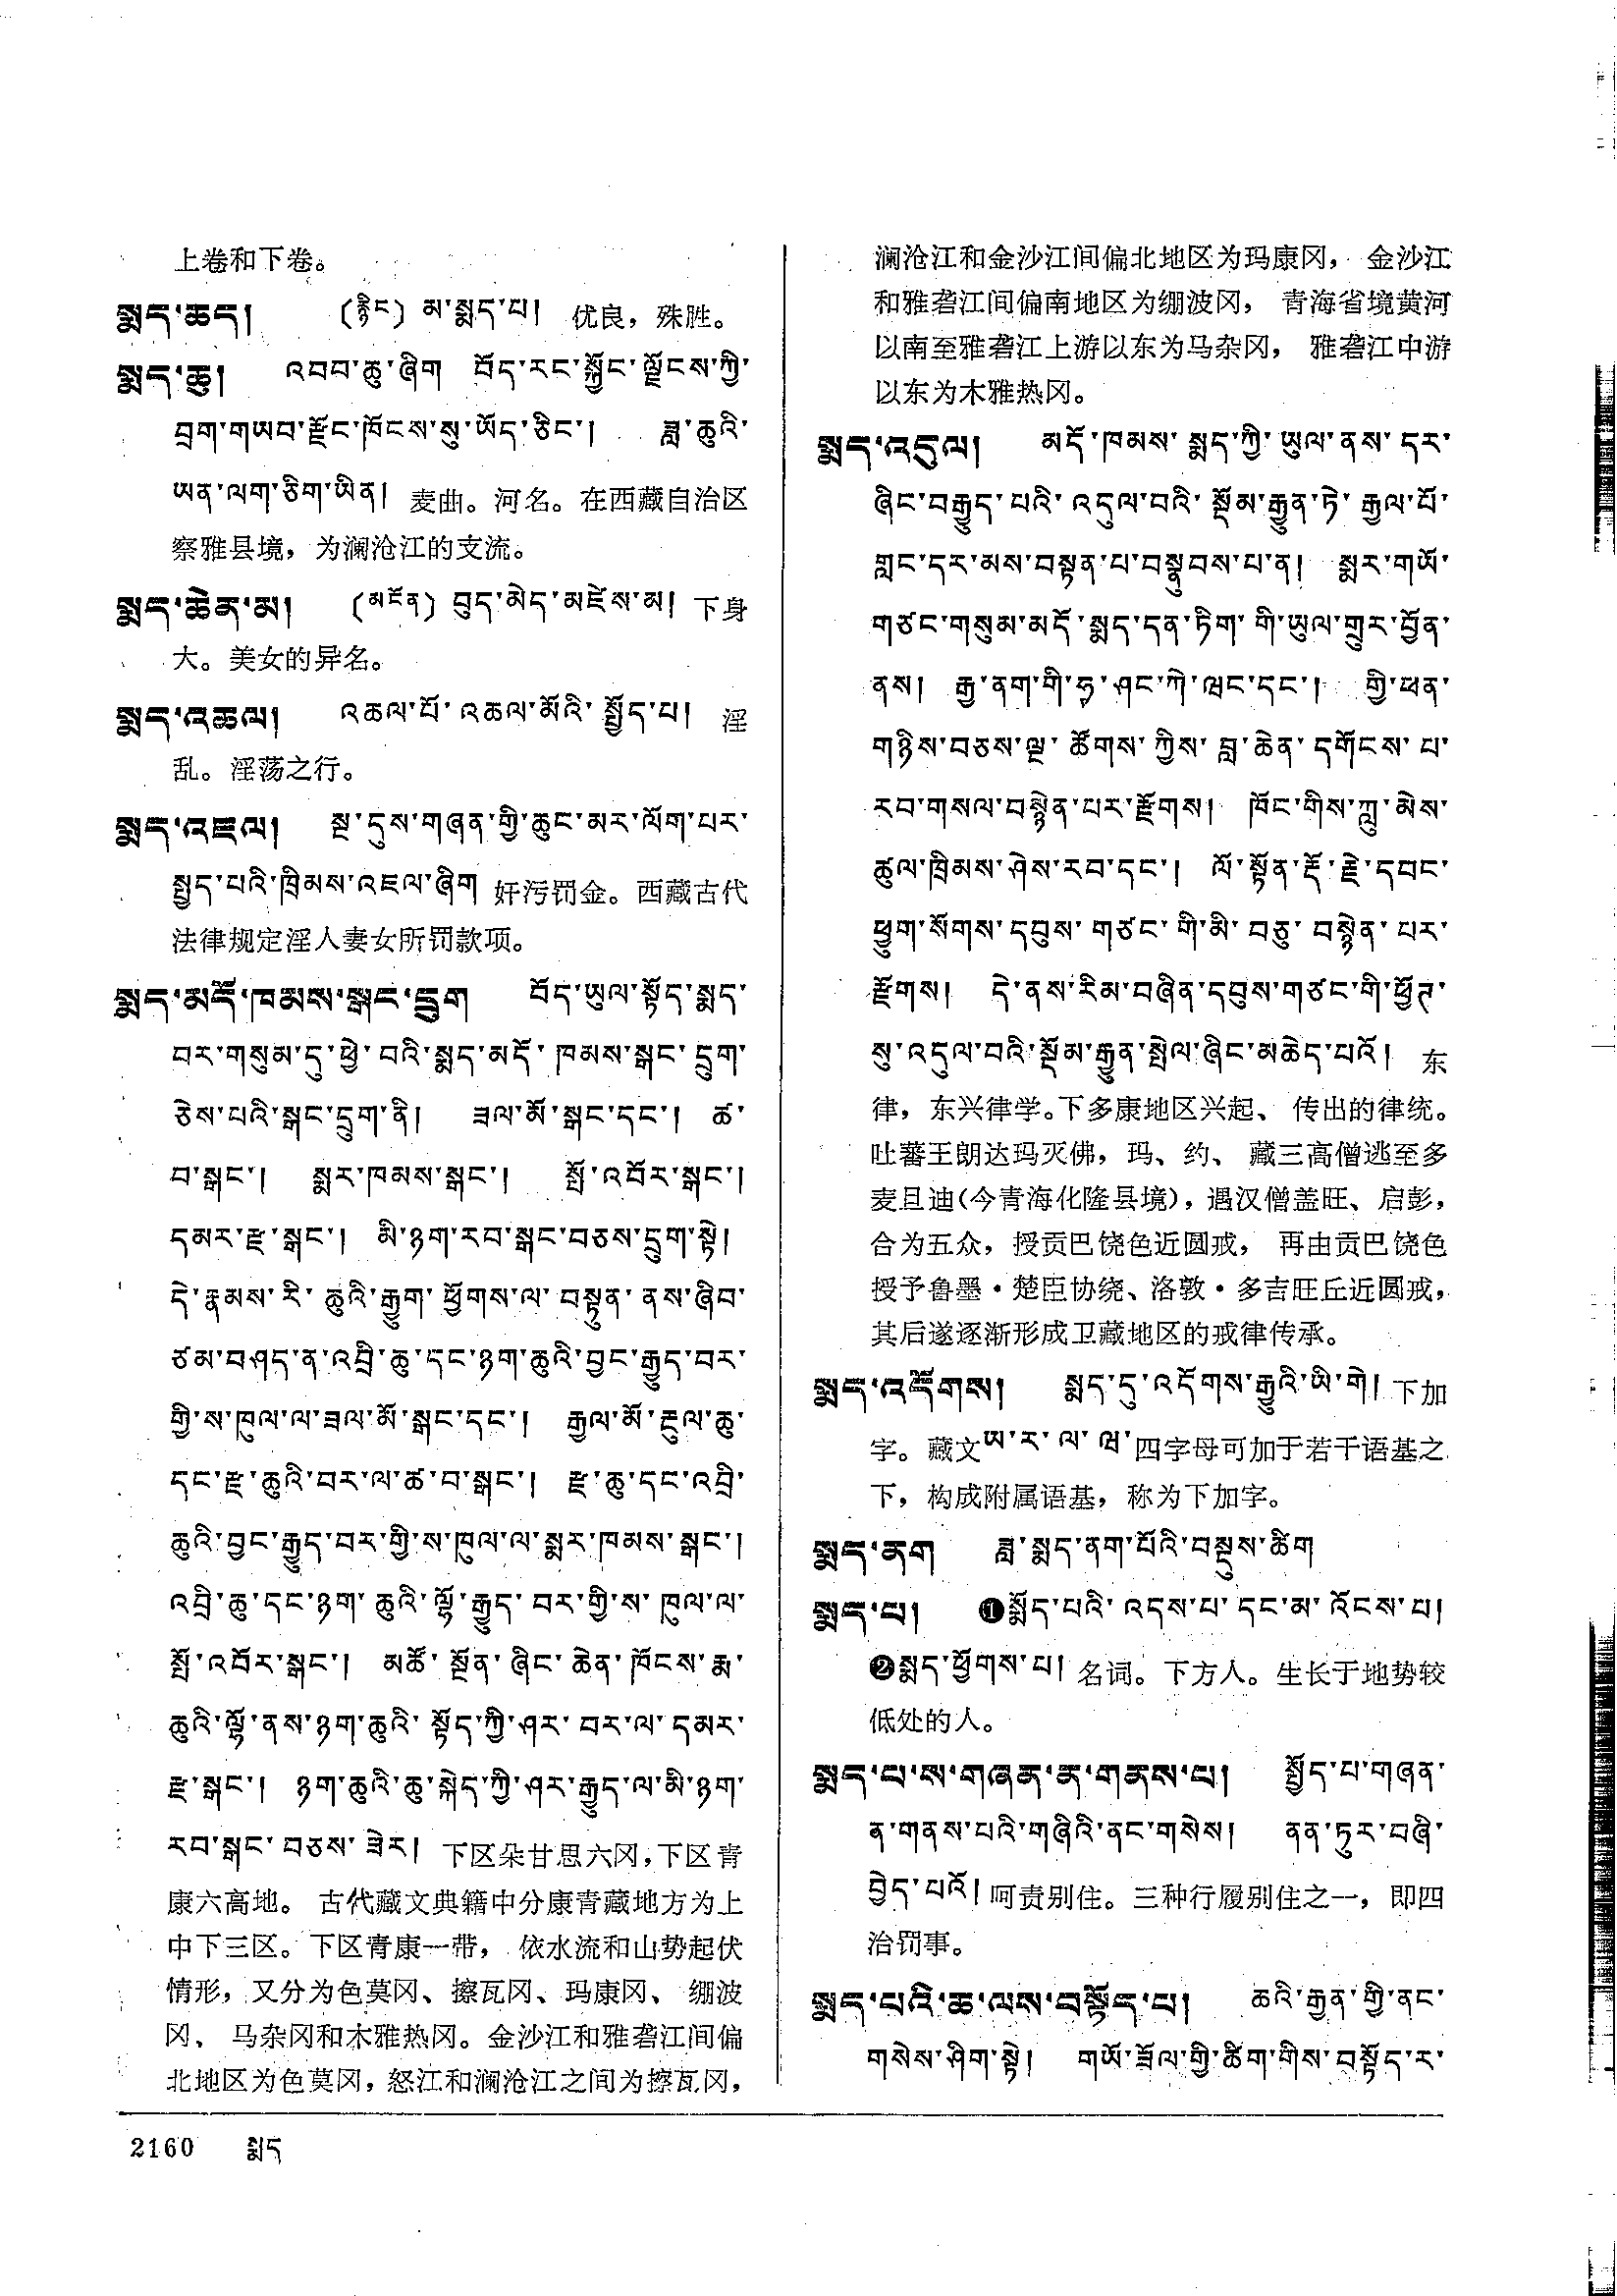 上卷和下卷。
སྨད་ཆད།	(རྙིང) མ་སྨད་པ། 优良，殊胜。
སྨད་ཆུ།	འབབ་ཆུ་ཞིག བོད་རང་སྐྱོང་ལྗོངས་ཀྱི་
བྲག་གཡབ་རྫོང་ཁོངས་སུ་ཡོད་ཅིང་། ཟླ་ཆུའི་
ཡན་ལག་ཅིག་ཡིན། 麦曲。河名。在西藏自治区
察雅县境，为澜沧江的支流。
སྨད་ཆེན་མ།	(མངོན) བུད་མེད་མཛེས་མ། 下身
大。美女的异名。
སྨད་འཆལ།	འཆལ་པོ་འཆལ་མོའི་སྤྱོད་པ། 淫
乱。淫荡之行。
སྨད་འཇལ།	སྔ་དུས་གཞན་གྱི་ཆུང་མར་ལོག་པར་
སྤྱད་པའི་ཁྲིམས་འཇལ་ཞིག 奸污罚金。西藏古代
法律规定淫人妻女所罚款项。
སྨད་མདོ་ཁམས་སྒང་དྲུག	བོད་ཡུལ་སྟོད་སྨད་
བར་གསུམ་དུ་ཕྱེ་བའི་སྨད་མདོ་ཁམས་སྒང་དྲུག་
ཅེས་པའི་སྒང་དྲུག་ནི། ཟལ་མོ་སྒང་དང་། ཚ་
བ་སྒང་། སྨར་ཁམས་སྒང་། སྤོ་འབོར་སྒང་།
དམར་རྫ་སྒང་། མི་ཉག་རབ་སྒང་བཅས་དྲུག་སྟེ།
དེ་རྣམས་རི་ཆུའི་རྒྱུག་ཕྱོགས་ལ་བསྟུན་ནས་ཞིབ་
ཙམ་བཤད་ན་འབྲི་ཆུ་དང་ཉག་ཆུའི་བྱང་རྒྱུད་བར་
གྱི་ས་ཁུལ་ལ་ཟལ་མོ་སྒང་དང་། རྒྱལ་མོ་རྔུལ་ཆུ་
དང་རྫ་ཆུའི་བར་ལ་ཚ་བ་སྒང་། རྫ་ཆུ་དང་འབྲི་
ཆུའི་བྱང་རྒྱུད་བར་གྱི་ས་ཁུལ་ལ་སྨར་ཁམས་སྒང་།
འབྲི་ཆུ་དང་ཉག་ཆུའི་ལྷོ་རྒྱུད་བར་གྱི་ས་ཁུལ་ལ་
སྤོ་འབོར་སྒང་། མཚོ་སྔོན་ཞིང་ཆེན་ཁོངས་རྨ་
ཆུའི་ལྷོ་ནས་ཉག་ཆུའི་སྟོད་ཀྱི་ཤར་བར་ལ་དམར་
རྫ་སྒང་། ཉག་ཆུའི་ཆུ་སྐེད་ཀྱི་ཤར་རྒྱུད་ལ་མི་ཉག་
རབ་སྒང་བཅས་ཟེར། 下区朵甘思六冈，下区青
康六高地。 古代藏文典籍中分康青藏地方为上
中下三区。下区青康一带，依水流和山势起伏
情形，又分为色莫冈、擦瓦冈、玛康冈、绷波
冈、马杂冈和木雅热冈。金沙江和雅砻江间偏
北地区为色莫冈，怒江和澜沧江之间为擦瓦冈，
澜沧江和金沙江间偏北地区为玛康冈，金沙江
和雅砻江间偏南地区为绷波冈，青海省境黄河
以南至雅砻江上游以东为马杂冈，雅砻江中游
以东为木雅热冈。
སྨད་འདུལ།	མདོ་ཁམས་སྨད་ཀྱི་ཡུལ་ནས་དར་
ཞིང་བརྒྱུད་པའི་འདུལ་བའི་སྡོམ་རྒྱུན་ཏེ་རྒྱལ་པོ་
གླང་དར་མས་བསྟན་པ་བསྣུབས་པ་ན། སྨར་གཡོ་
གཙང་གསུམ་མདོ་སྨད་དན་ཏིག་གི་ཡུལ་གྲུར་བྱོན་
ནས། རྒྱ་ནག་གི་ཧྭ་ཤང་ཀེ་ཝང་དང་། གྱི་ཕན་
གཉིས་བཅས་ལྔ་ཚོགས་ཀྱིས་བླ་ཆེན་དགོངས་པ་
རབ་གསལ་བསྙེན་པར་རྫོགས། ཁོང་གིས་ཀླུ་མེས་
ཚུལ་ཁྲིམས་ཤེས་རབ་དང་། ལོ་སྟོན་རྡོ་རྗེ་དབང་
ཕྱུག་སོགས་དབུས་གཙང་གི་མི་བཅུ་བསྙེན་པར་
རྫོགས། དེ་ནས་རིམ་བཞིན་དབུས་གཙང་གི་ཕྱོགས་
སུ་འདུལ་བའི་སྡོམ་རྒྱུན་སྤེལ་ཞིང་མཆེད་པའོ། 东
律，东兴律学。下多康地区兴起、传出的律统。
吐蕃王朗达玛灭佛，玛、约、藏三高僧逃至多
麦旦迪(今青海化隆县境)，遇汉僧盖旺、启彭，
合为五众，授贡巴饶色近圆戒，再由贡巴饶色
授予鲁墨·楚臣协绕、洛敦·多吉旺丘近圆戒，
其后遂逐渐形成卫藏地区的戒律传承。
སྨད་འདོགས།	སྨད་དུ་འདོགས་རྒྱུའི་ཡི་གེ། 下加
字。藏文ཡ་ར་ལ་ཝ་四字母可加于若干语基之
下，构成附属语基，称为下加字。
སྨད་ནག	ཟླ་སྨད་ནག་པོའི་བསྡུས་ཚིག
སྨད་པ།	❶སྨོད་པའི་འདས་པ་དང་མ་འོངས་པ།
❷སྨད་ཕྱོགས་པ། 名词。下方人。生长于地势较
低处的人。
སྨད་པ་ས་གཞན་ན་གནས་པ།	སྤྱོད་པ་གཞན་
ན་གནས་པའི་གཞིའི་ནང་གསེས། ནན་ཏུར་བཞི་
བྱེད་པའོ། 呵责别住。三种行履别住之一，即四
治罚事。
སྨད་པའི་ཆ་ལས་བསྟོད་པ།	ཆའི་རྒྱན་གྱི་ནང་
གསེས་ཤིག་སྟེ། གཡོ་ཟོལ་གྱི་ཚིག་གིས་བསྟོད་ར་
2160	སྨད